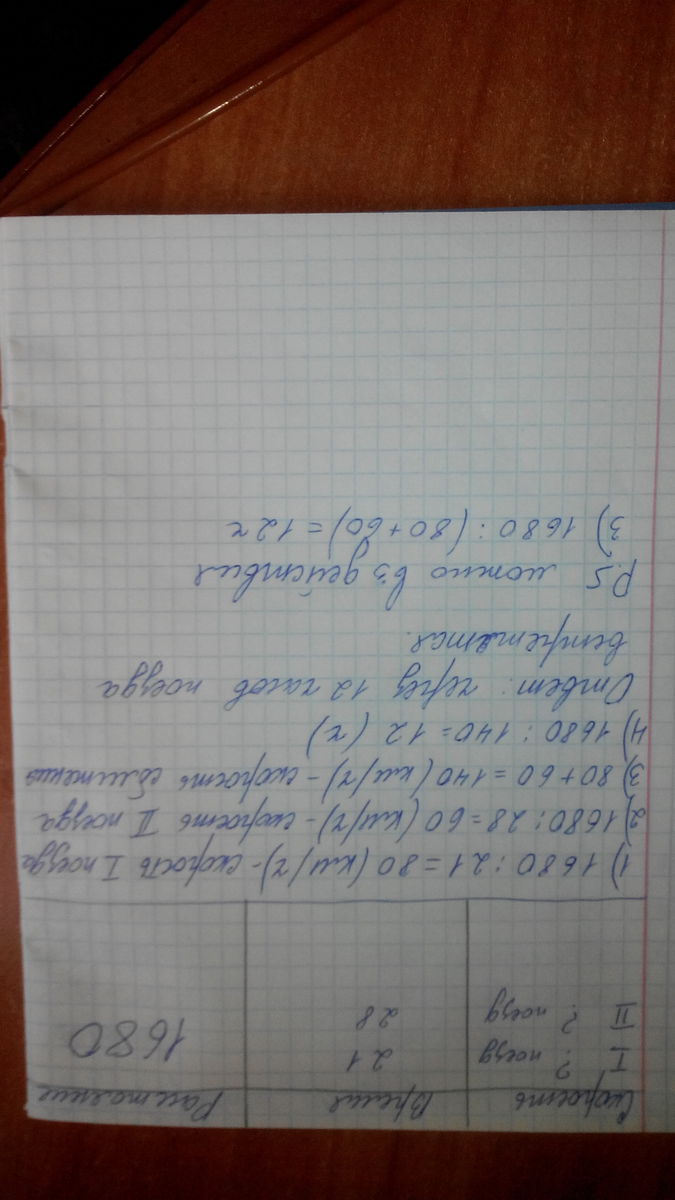 Скорость Время Расстояние
I ? поезд 21
II ? поезд 28 1680
1) 1680 : 21 = 80 (км/ч) - скорость I поезда
2) 1680 : 28 = 60 (км/ч) - скорость II поезда
3) 80 + 60 = 140 (км/ч) - скорость сближения
4) 1680 : 140 = 12 (ч)
Ответ: через 12 часов поезда
встретятся.
P.S можно в 3 действия
3) 1680 : (80 + 60) = 12 ч